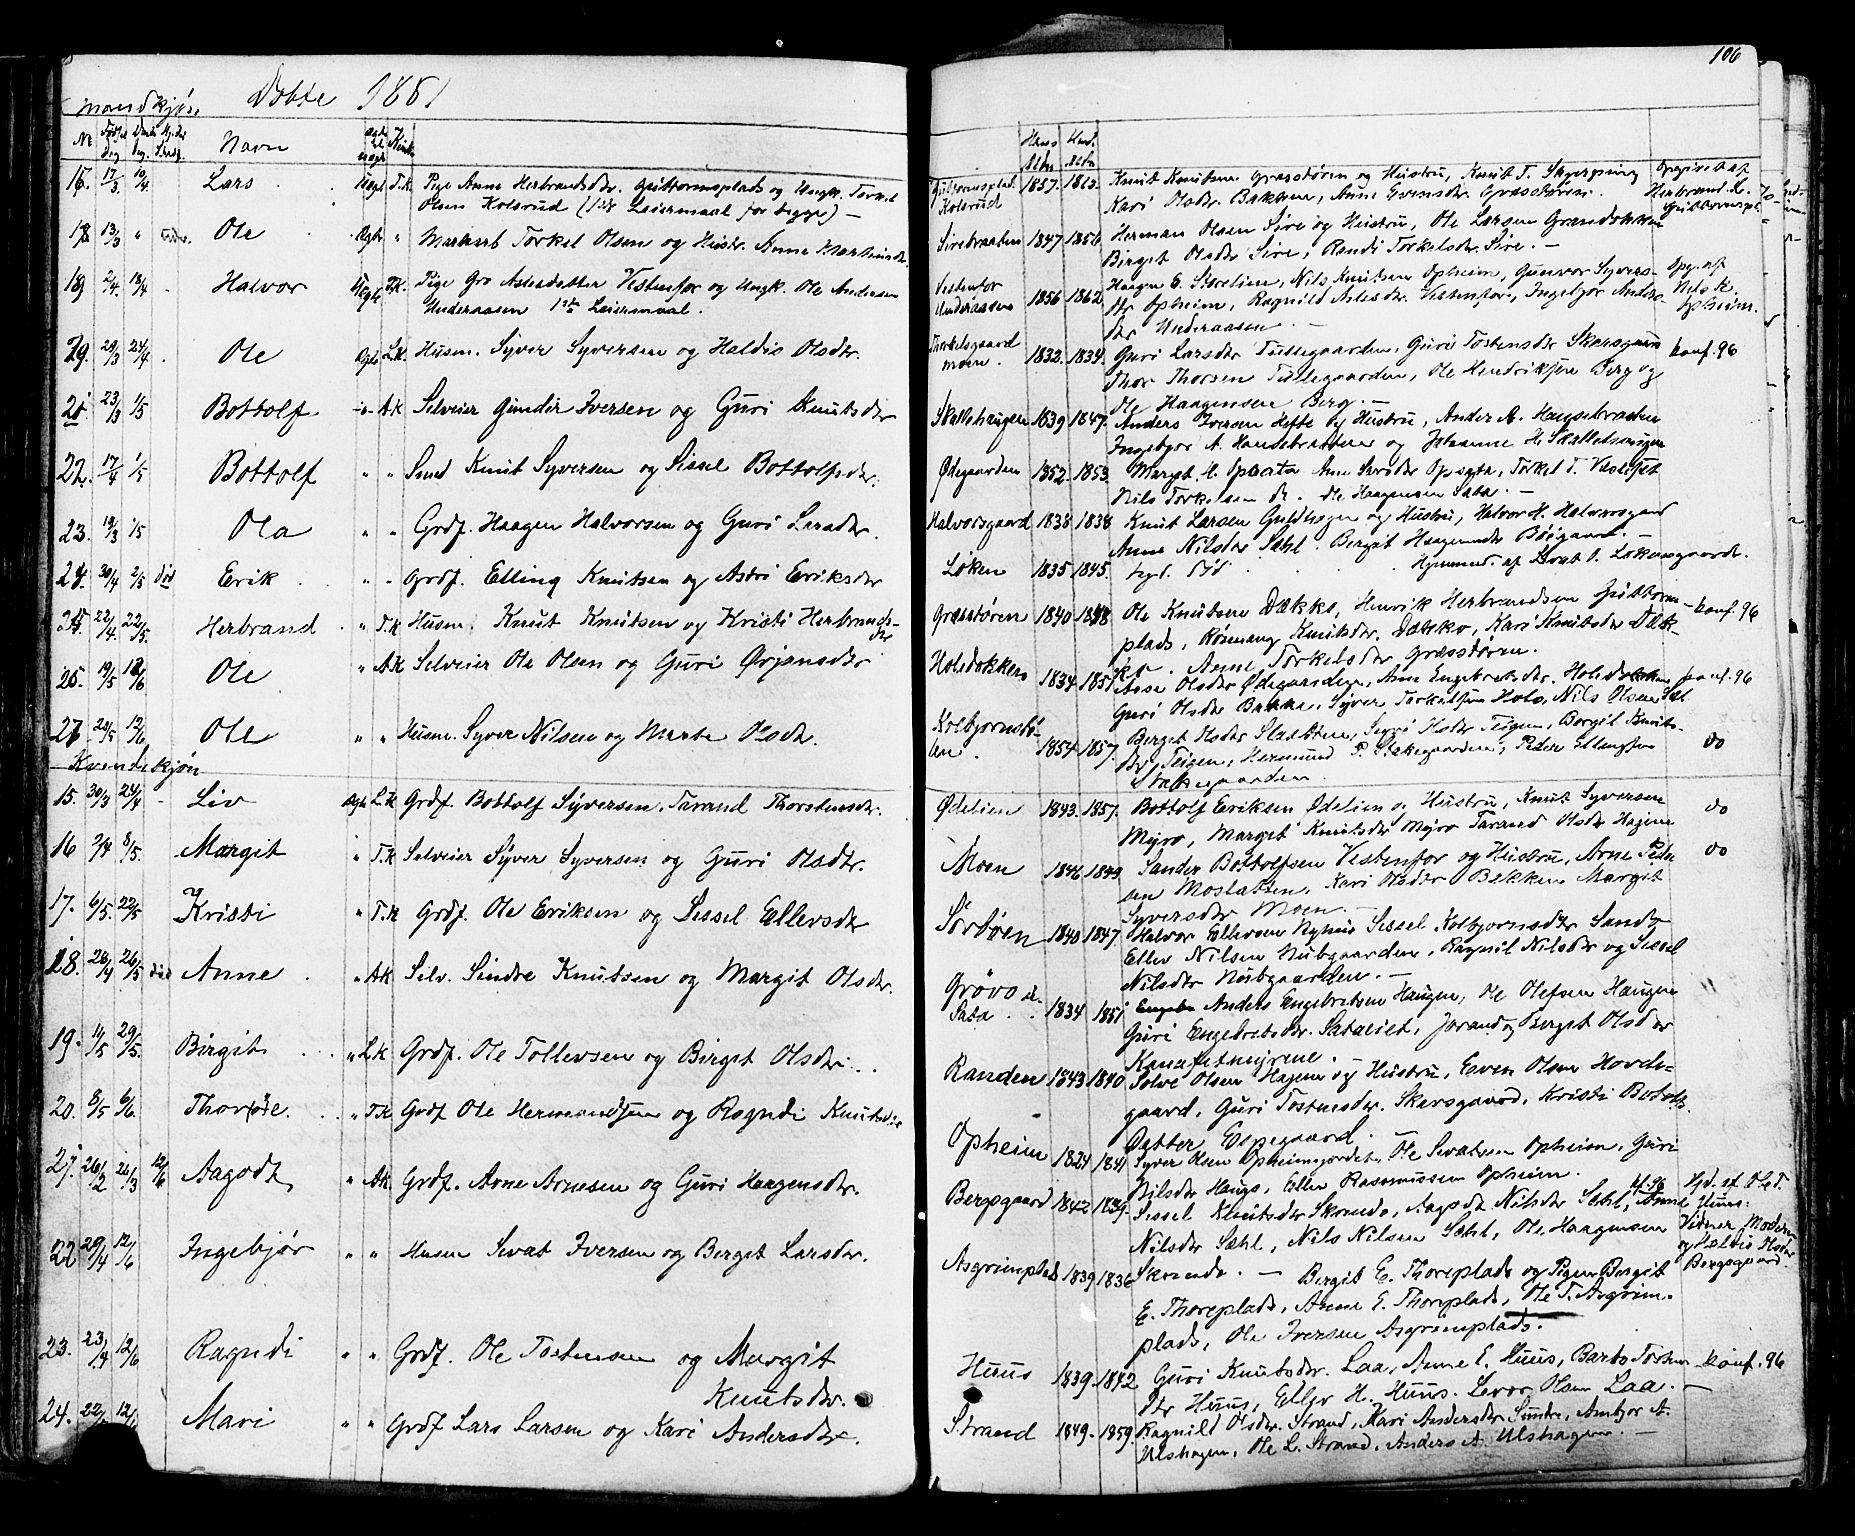 Mandkjøn. Døbte 1881
106
No Fødsels dag. Daabs dag. Navn
Hans Alder Hend. Alder
16. 17/3 10/4 Lars Uægt T.K Pige Anne Herbrandsdr. Guttormsplads og Ungk. Torkel
Olsen Kolsrud (1ste Leiermaal for begge) —
Guttormsplads Kolsrud 1857. 1863. Knut Knutsen Græsstøren og Hustru, Knut T. Skjerping
Kari Olsdr. Bakken, Anne Evensdr. Græsstøren.
Opgivet af Herbrand K. Guttormspl.
18 13/3 " Ole Ægte " Matros Torkel Olsen og Hustr. Anne
Sirebraaten 1847 1856 Herman Olsen Sire og Hustru, Ole Larsen Grandokken
Birget Olsdr Sire, Randi Torkelsdr. Sire. —
19 2/4. 18/4 Halvor Uægte T.K. Pige Gro Aslesdatter Vestenfor og Ungk. Ole Andersen
Underaasen 1ste Leiermaal.
Vestenfor Underaasen 1856 1862 Haagen E. Storelien, Nils Knutsen Opheim, Gunvor Syvers-
dtr Opheim, Ragnild Aslesdr. Vestenfor, Ingebjør Anders-
dtr Underaasen. —
Opg. af Nils K. Opheim.
20. 29/3 24/4 Ole Ægte L.K Husm. Syver Syversen og Haldis Olsdr.
Torkelsgaard moen. 1832. 1834. Guri Larsdr Tullegaarden, Guri Tostensdr Skarsgaard
Thor Thorsen Tullegaarden, Ole Hendriksen Berg og
Ole Haagensen Berg. —
konf. 96
21 23/3 1/5 Bottolf A.K Selveier Gunder Iversen og Guri Knutsdr
Skallehaugen 1839 1847. Anders Iversen Hefte og Hustru, Ander A. Haugsebraaten
Ingebjør A. Haugsebraaten og Johanne H. Skallehaugen
22. 17/4 1/5 Bottolf " " Smed Knut Syversen og Sissel Bottolfsdr.
Ødegaarden 1852. 1853. Margt. H. Opsata Anne Opsata, Torkel T.
Nils Torkelsen dr. Ole Haagensen Sata. —
23. 19/3 1/5 Ola " " Grdf. Haagen Halvorsen og Guri Larsdr.
Halvorsgaard 1838. 1838 Knut Larsen Guldhagen og Hustru, Halvor H. Halvorsgaard
Anne Nilsdr Sæhl. Bergit Haagensdr Bøigaard. —
24. 30/4 2/5 død Erik " " Grdf. Elling Knutsen og Astri Eriksdr
Løken 1835 1845. død Hjemmed. af Sevat O. Løkensgaard.
22/4. 22/5. Herbrand " T.K Husm. Knut Knutsen og Kristi Herbrands-
dtr
Græsstøren 1840 1848 Ole Knutsen Dækko, Henrik Herbrandsen Guttorm-
plads, Rønnaug Knutsdr. Dækko, Kari Knutsdr Dæk-
ko. Anne Torkelsdr. Græsstøren.
konf. 96
25. 19/5 Ole " A.K Selveier Ole Olsen og Guri Ørjansdr
Holsdokken 1834. 1851 Assi Olsdr Ødegaarden, Anne Engebretsdr. Holsdokken
Guri Olsdr Bakka, Syver Torkelsen Hols, Nils Olsen
konf. 96
27 29/5 12/6 Ole " " Husm. Syver Nilsen og Marte Olsdr.
Kolbjørnstølen. 1854 1857. Berget Olsdr Slaatten, Sigri Olsdr Teigen, Borgil Knuts-
dtr Teigen, Hermund P. Stakegaarden, Peder Ellingsen
Stakegaarden.
do
Kvindekjøn
15. 30/3 24/4 Liv Ægte L.K Grdf. Bottolf Syversen. Tarand Thorstensdr.
Ødelien 1843. 1857. Bottolf Eriksen Ødelien og Hustru, Knut Syversen
Myro, Margit Knutsdr Myro Tarand Olsdr Hagene
do
16 2/4 8/5. Margit " T.K Selveier Syver Syversen og Guri Olsdtr.
Moen 1846 1849 Sander Bottolfsen Vestenfor og Hustru, Arne Peder-
sen Moslatten, Kari Olsdtr Bakken Margit
Syversdtr Moen. —
do
17. 6/5. 22/5 Kristi " T.K Grdf. Ole Eriksen og Sissel Ellevsdtr
Sørbøen 1840 1847. Halvor Ellevsen Nyhus Sissel Kolbjørnsdtr Sando
Ellev Nilsen Nubgaarden, Ragnil Nilsdr og Sissel
Nilsdr Nubgaarden. —
18. 28/4 26/5 død Anne " A.K Selv. Sindre Knutsen og Margit Olsdr.
Grøvo Sata 1834 1851 Anders Engebretsen Haugen, Ole Olefsen Haugen
Guri Engebretsdr. Satalien, Jorand og Berget Olsdr
19. 11/5 29/5. Birgit " L.K Grdf. Ole Tollevsen og Birget Olsdr.
Randen 1843 1840 Solve Olsen Hagene og Hustru, Even Olsen Hovde-
gaard, Guri Tostensdr. Skarsgaard, Kristi Botolfs
Datter Espegaard. —
20. 8/5 6/6. Thorøde T.K Grdf Ole Hermandsen og Ragndi Knutsdtr
Opheim 1824 1841 Syver Olsen Opheimsjordet, Ole Sevatsen Opheim, Guri
Nilsdr Haugs, Ellev Rasmussen Opheim.
21. 26/2 26/3 12/6 Aagodt " A.K Grdf. Arne Arnesen og Guri Haagensdr.
Bergsgaard 1842 1839. Sissel Knutsdr Skrindo, Aagodt Nilsdr Sæhl, Anne
Nilsdr Sæhl, Nils Nilsen Sæhl, Ole Haagensen
Skrindo. —
kf. 96 Hjd. af Ole T. Huus: Vidner, Moderen og Halvis Olsdtr Bergsgaard.
22 29/4 12/6 Ingebjør " " Husm Sevat Iversen og Berget Larsdr.
Asgrimplads 1839 1836 Bergit E. Thoreplads og Pigen Bergit
E. Thoreplads, Anne E. Thoreplads, Ole T. Asgrim-
plads, Ole Iversen Asgrimplads.
23. 23/4 12/6 Ragndi " " Grdf. Ole Tostensen og Margit
Knutsdr.
Huus 1839 1842 Guri Knutsdr. Laa, Anne E. Huus, Barbo Tosten-
dtr Huus, Ellev H. Huus. Levor Olsen Laa. —
konf. 96
24. 22/ 12/6 Mari " " Grdf Lars Larsen og Kari Andersdtr.
Strand 1849. 1859. Ragnild Olsdr. Strand, Kari Andersdtr Sundre, Ambjør A.
Ulshagen, Ole L. Strand, Anders A. Ulshagen. —